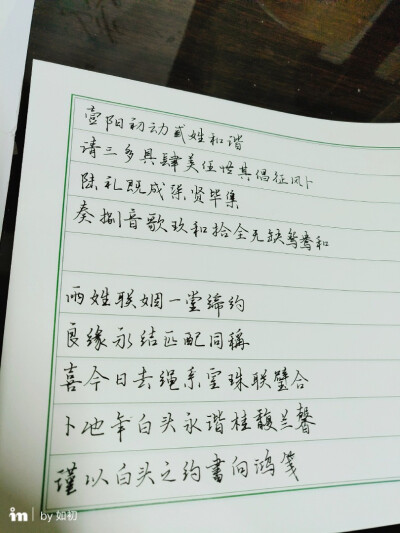 壹阳初动贰姓和谐
请三多具肆美伍世其倡征凤卜
陆礼既成柒贤毕集
奏捌音歌玖和拾全无缺鸳鸯和
两姓联姻一堂缔约
良缘永结匹配同稱
喜今日赤绳系定珠联璧合
卜他年白头永谐桂馥兰馨
谨以白头之约書向鸿笺
in | by 如初